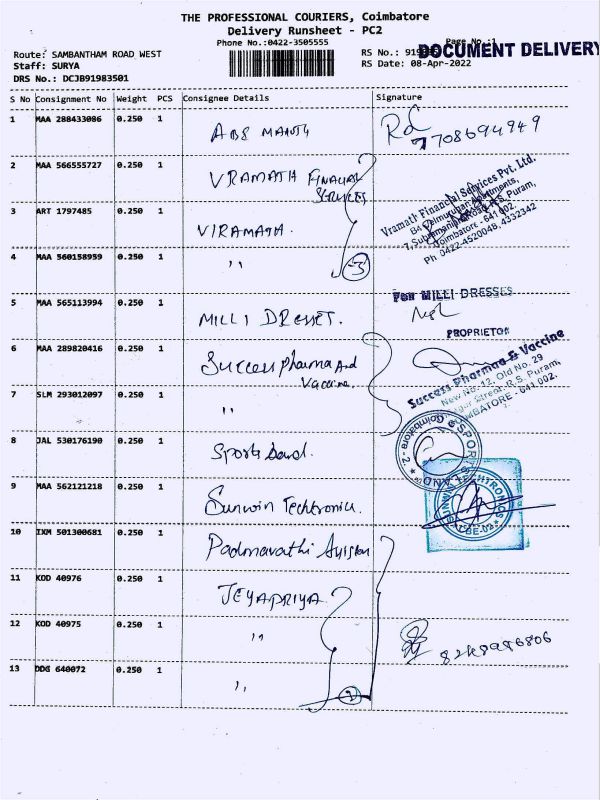 THE PROFESSIONAL COURIERS, Coimbatore
Delivery Runsheet - PC2
Phone No.:0422-3505555
Page No.:1
Route: SAMBANTHAM ROAD WEST
RS No.: 919
DOCUMENT DELIVERY
Staff: SURYA
RS Date: 08-Apr-2022
DRS No.: DCJB91983501
S No Consignment No Weight PCS Consignee Details Signature
1 MAA 288433086 0.250 1 ABS
7708694949
2 MAA 566555727 0.250 1 VRAMATH FINACIAL
SERVICES
Vramath Financial Services Pvt. Ltd.
Coimbatore - 641 002.
Ph 0422-4520048, 4332342
3 ART 1797485 0.250 1 VIRAMATH.
4 MAA 560158959 0.250 1 ,,
3
5 MAA 565113994 0.250 1 MILLI DRESSET.
For MILLI DRESSES
PROPRIETOR
6 MAA 289820416 0.250 1 Success pharma And
Vaccine.
Success Pharmaa & Vaccine
New No. 12, Old No. 29
R.S. Puram,
COIMBATORE - 641 002.
7 SLM 293012097 0.250 1 ,,
8 JAL 530176190 0.250 1 Sports land.
SPORTS LAND
Coimbatore - 2
9 MAA 562121218 0.250 1 Sunwin Techtronics.
SUNWIN TECHTRONICS
CBE-02
10 IXM 501300681 0.250 1 Padmavathi
11 KOD 40976 0.250 1 JEYAPRIYA
12 KOD 40975 0.250 1 ,,
13 DDG 640072 0.250 1 ,,